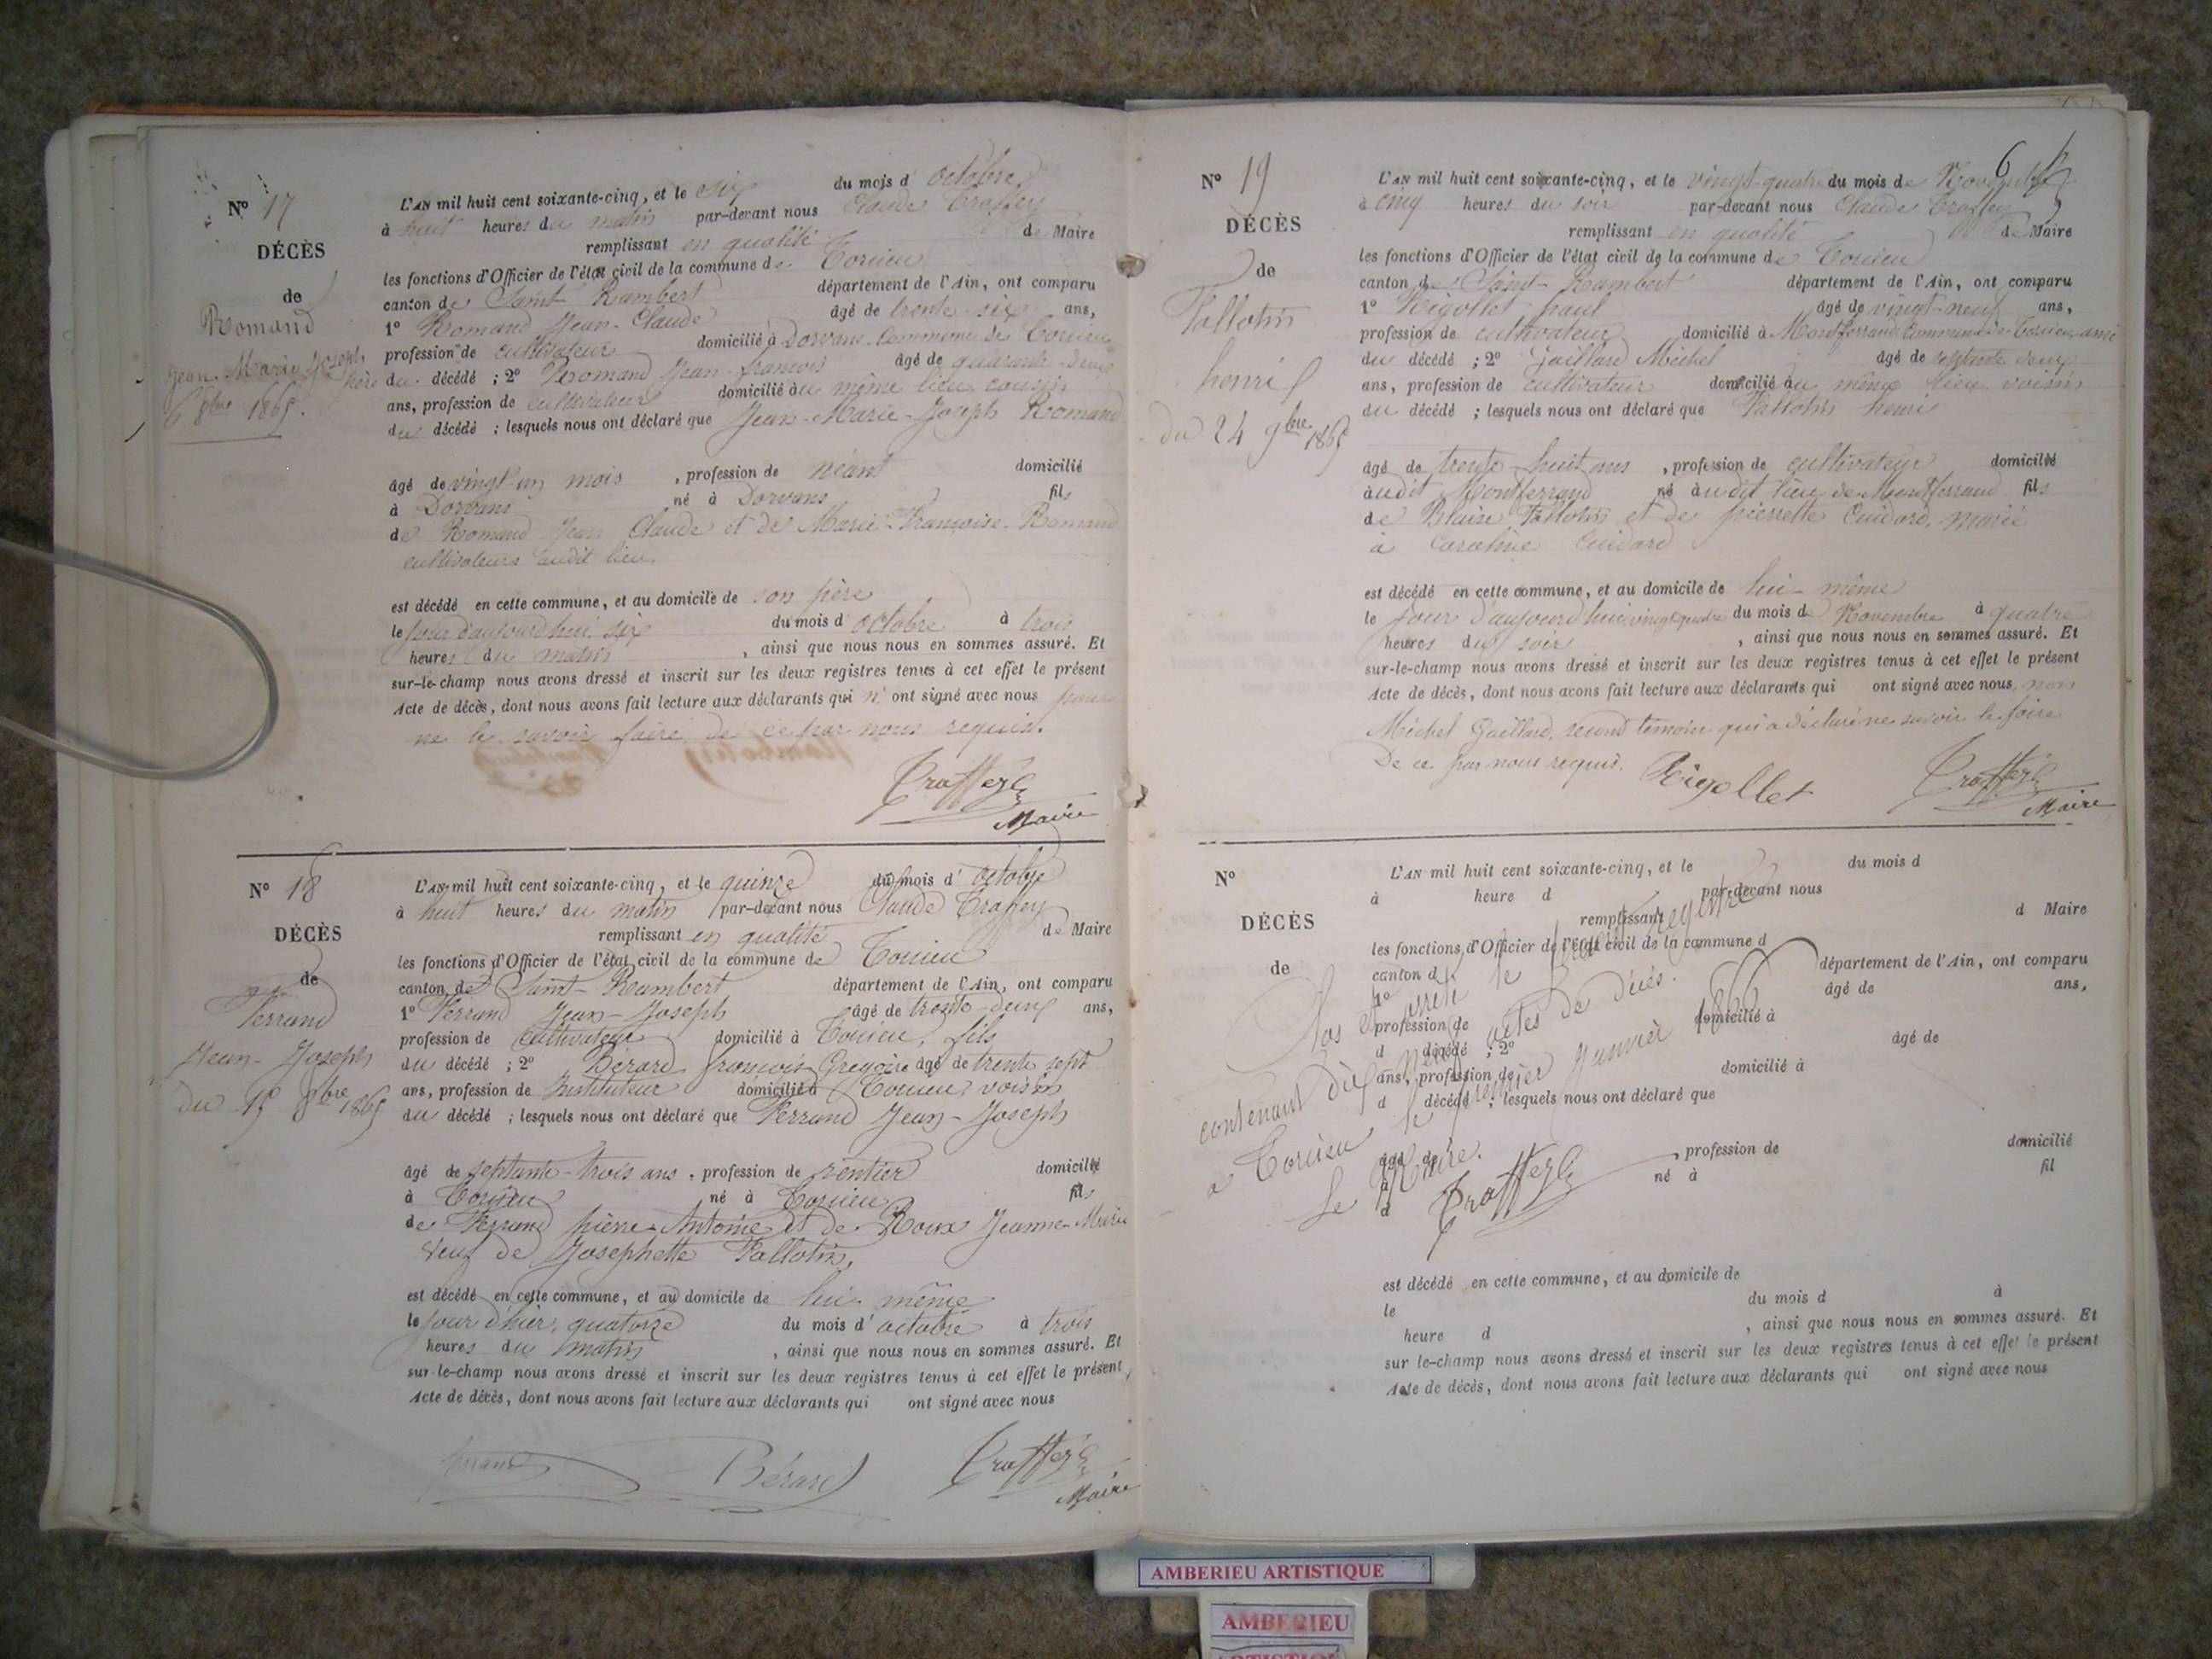 N° 17
DÉCÈS
de
Romand
Jean-Marie Joseph
6 8bre 1865.
L'AN mil huit cent soixante-cinq, et le six du mois d'octobre
à huit heures du matin par-devant nous Claude Traffey
remplissant en qualité de Maire
les fonctions d'Officier de l'état civil de la commune de Torcieu
canton de Saint Rambert département de l'Ain, ont comparu
1° Romand Jean-Claude âgé de trente-six ans,
profession de cultivateur domicilié à Dorvans commune de Torcieu
père du décédé ; 2° Romand Jean-francois âgé de quarante-deux
ans, profession de cultivateur domicilié au même lieu cousin
du décédé ; lesquels nous ont déclaré que Jean-Marie-Joseph Romand
âgé de vingt un mois , profession de néant domicilié
à Dorvans né à Dorvans fils
de Romand Jean Claude et de Marie-Françoise-Romand
cultivateurs audit lieu.
est décédé en cette commune, et au domicile de son père
le jour d'aujourd'hui six du mois d'octobre à trois
heures du matin , ainsi que nous nous en sommes assuré. Et
sur-le-champ nous avons dressé et inscrit sur les deux registres tenus à cet effet le présent
Acte de décès, dont nous avons fait lecture aux déclarants qui n'ont signé avec nous pour
ne le savoir faire de ce par nous requis.
Traffey
Maire
N° 18
DÉCÈS
de
Ferrand
Jean-Joseph
du 15 8bre 1865
L'AN mil huit cent soixante-cinq, et le quinze du mois d'octobre
à huit heures du matin par-devant nous Claude Traffey
remplissant en qualité de Maire
les fonctions d'Officier de l'état civil de la commune de Torcieu
canton de Saint-Rambert département de l'Ain, ont comparu
1° Ferrand Jean-Joseph âgé de trente-deux ans,
profession de cultivateur domicilié à Torcieu, fils
du décédé ; 2° Bérard francois Gregoire âgé de trente sept
ans, profession de Instituteur domicilié à Torcieu voisin
du décédé ; lesquels nous ont déclaré que Ferrand Jean-Joseph
âgé de septante-trois ans , profession de rentier domicilié
à Torcieu né à Torcieu fils
de Ferrand pierre-Antoine et de Roux Jeanne-Marie
veuf de Josephette Vallotin,
est décédé en cette commune, et au domicile de lui-même
le jour d'hier, quatorze du mois d'octobre à trois
heures du matin , ainsi que nous nous en sommes assuré. Et
sur-le-champ nous avons dressé et inscrit sur les deux registres tenus à cet effet le présent
Acte de décès, dont nous avons fait lecture aux déclarants qui ont signé avec nous
Ferrand Bérard Traffey
Maire
6
N° 19
DÉCÈS
de
Vallotin
henri
du 24 9bre 1865
L'AN mil huit cent soixante-cinq, et le vingt-quatre du mois de Novembre
à cinq heures du soir par-devant nous Claude Traffey
remplissant en qualité de Maire
les fonctions d'Officier de l'état civil de la commune de Torcieu
canton de Saint-Rambert département de l'Ain, ont comparu
1° Rigollet paul âgé de vingt-neuf ans,
profession de cultivateur domicilié à Montferrand Commune de Torcieu ami
du décédé ; 2° Gaillard Michel âgé de septante deux
ans, profession de cultivateur domicilié au même lieu voisin
du décédé ; lesquels nous ont déclaré que Vallotin henri
âgé de trente-huit ans , profession de cultivateur domicilié
audit Montferrand né audit lieu de Montferrand fils
de Blaise Vallotin et de pierrette Cuidard, marié
à Caroline Cuidard
est décédé en cette commune, et au domicile de lui-même
le jour d'aujourd'hui vingt quatre du mois de Novembre à quatre
heures du soir , ainsi que nous nous en sommes assuré. Et
sur-le-champ nous avons dressé et inscrit sur les deux registres tenus à cet effet le présent
Acte de décès, dont nous avons fait lecture aux déclarants qui ont signé avec nous, non
Michel Gaillard, second témoin qui a déclaré ne savoir le faire
De ce par nous requis. Rigollet Traffey
Maire
N°
DÉCÈS
de
L'AN mil huit cent soixante-cinq, et le du mois d
à heure d par-devant nous
remplissant d Maire
les fonctions d'Officier de l'état civil de la commune d
canton d département de l'Ain, ont comparu
1° âgé de ans,
profession de domicilié à
d décédé ; 2° âgé de
ans, profession de domicilié à
d décédé ; lesquels nous ont déclaré que
âgé de profession de domicilié
à né à fil
d
Clos et arrêté le présent registre
contenant dix neuf actes de décès.
a Torcieu le premier Janvier 1866
Le Maire.
Traffey
est décédé en cette commune, et au domicile de
le du mois d à
heure d , ainsi que nous nous en sommes assuré. Et
sur le-champ nous avons dressé et inscrit sur les deux registres tenus à cet effet le présent
Acte de décès, dont nous avons fait lecture aux déclarants qui ont signé avec nous
AMBERIEU ARTISTIQUE
AMBERIEU
ARTISTIQUE